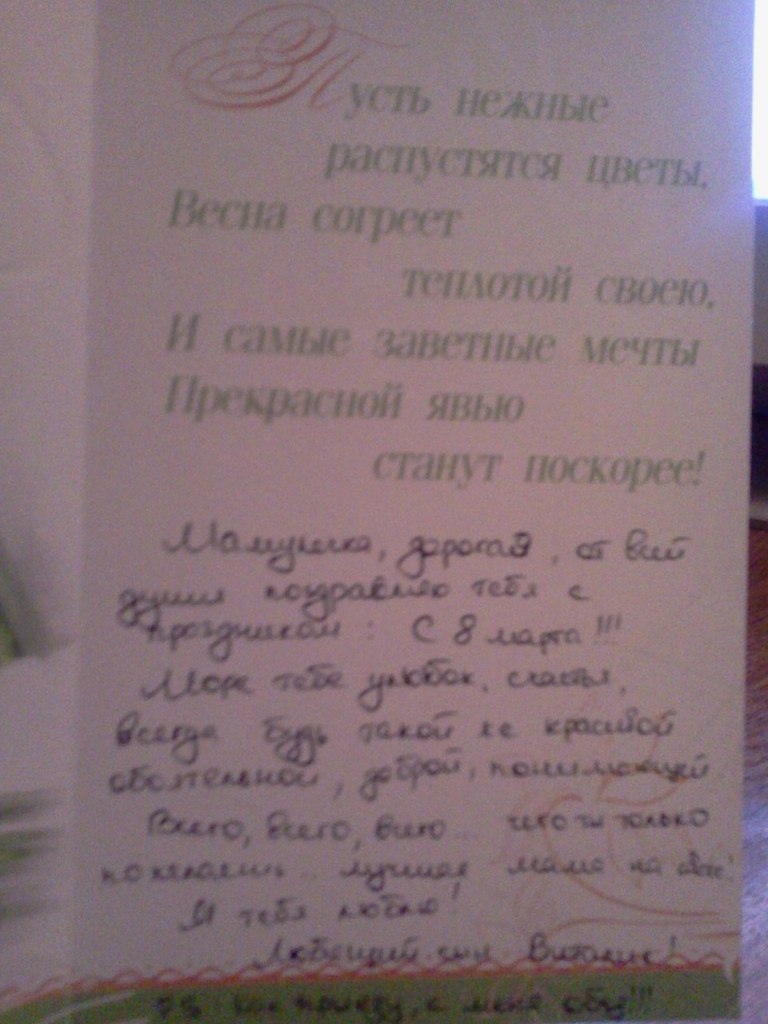 Пусть нежные
распустятся цветы,
Весна согреет
теплотой своею,
И самые заветные мечты
Прекрасной явью
станут поскорее!
Мамулечка, дорогая, от всей
души поздравляю тебя с
праздником: С 8 марта!!!
Море тебе улыбок, счастья,
всегда будь такой же красивой
обоятельной, доброй, понимающей.
Всего, всего, всего... чего ты только
пожелаешь... лучшая мама на свете!
Я тебя люблю!
Любящий сын Виталик!
P.S. как приеду, с меня !!!